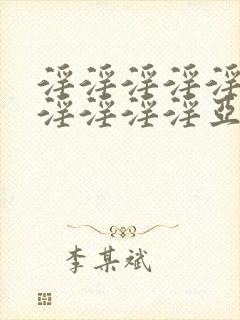 淫淫淫淫淫
淫淫淫淫亞
李某斌